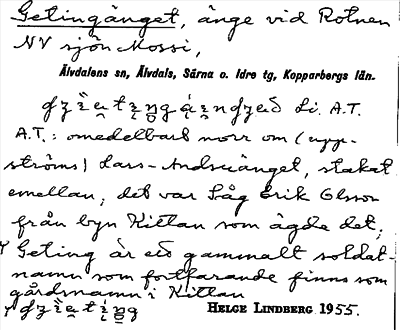 Getingänget, änge vid Rotnen
NV sjön Mossi,
Älvdalens sn, Älvdals, Särna o. Idre tg, Kopparbergs län.
Li. A.T.
A.T.: omedelbart norr om (upp-
ströms) Lars-Andsuänget, stakat
emellan; det var Såg Erik Olsson
från byn Kittan som ägde det;
Geting är ett gammalt soldat-
namn som fortfarande finns som
gårdsnamn i Kittan
HELGE LINDBERG 1955.